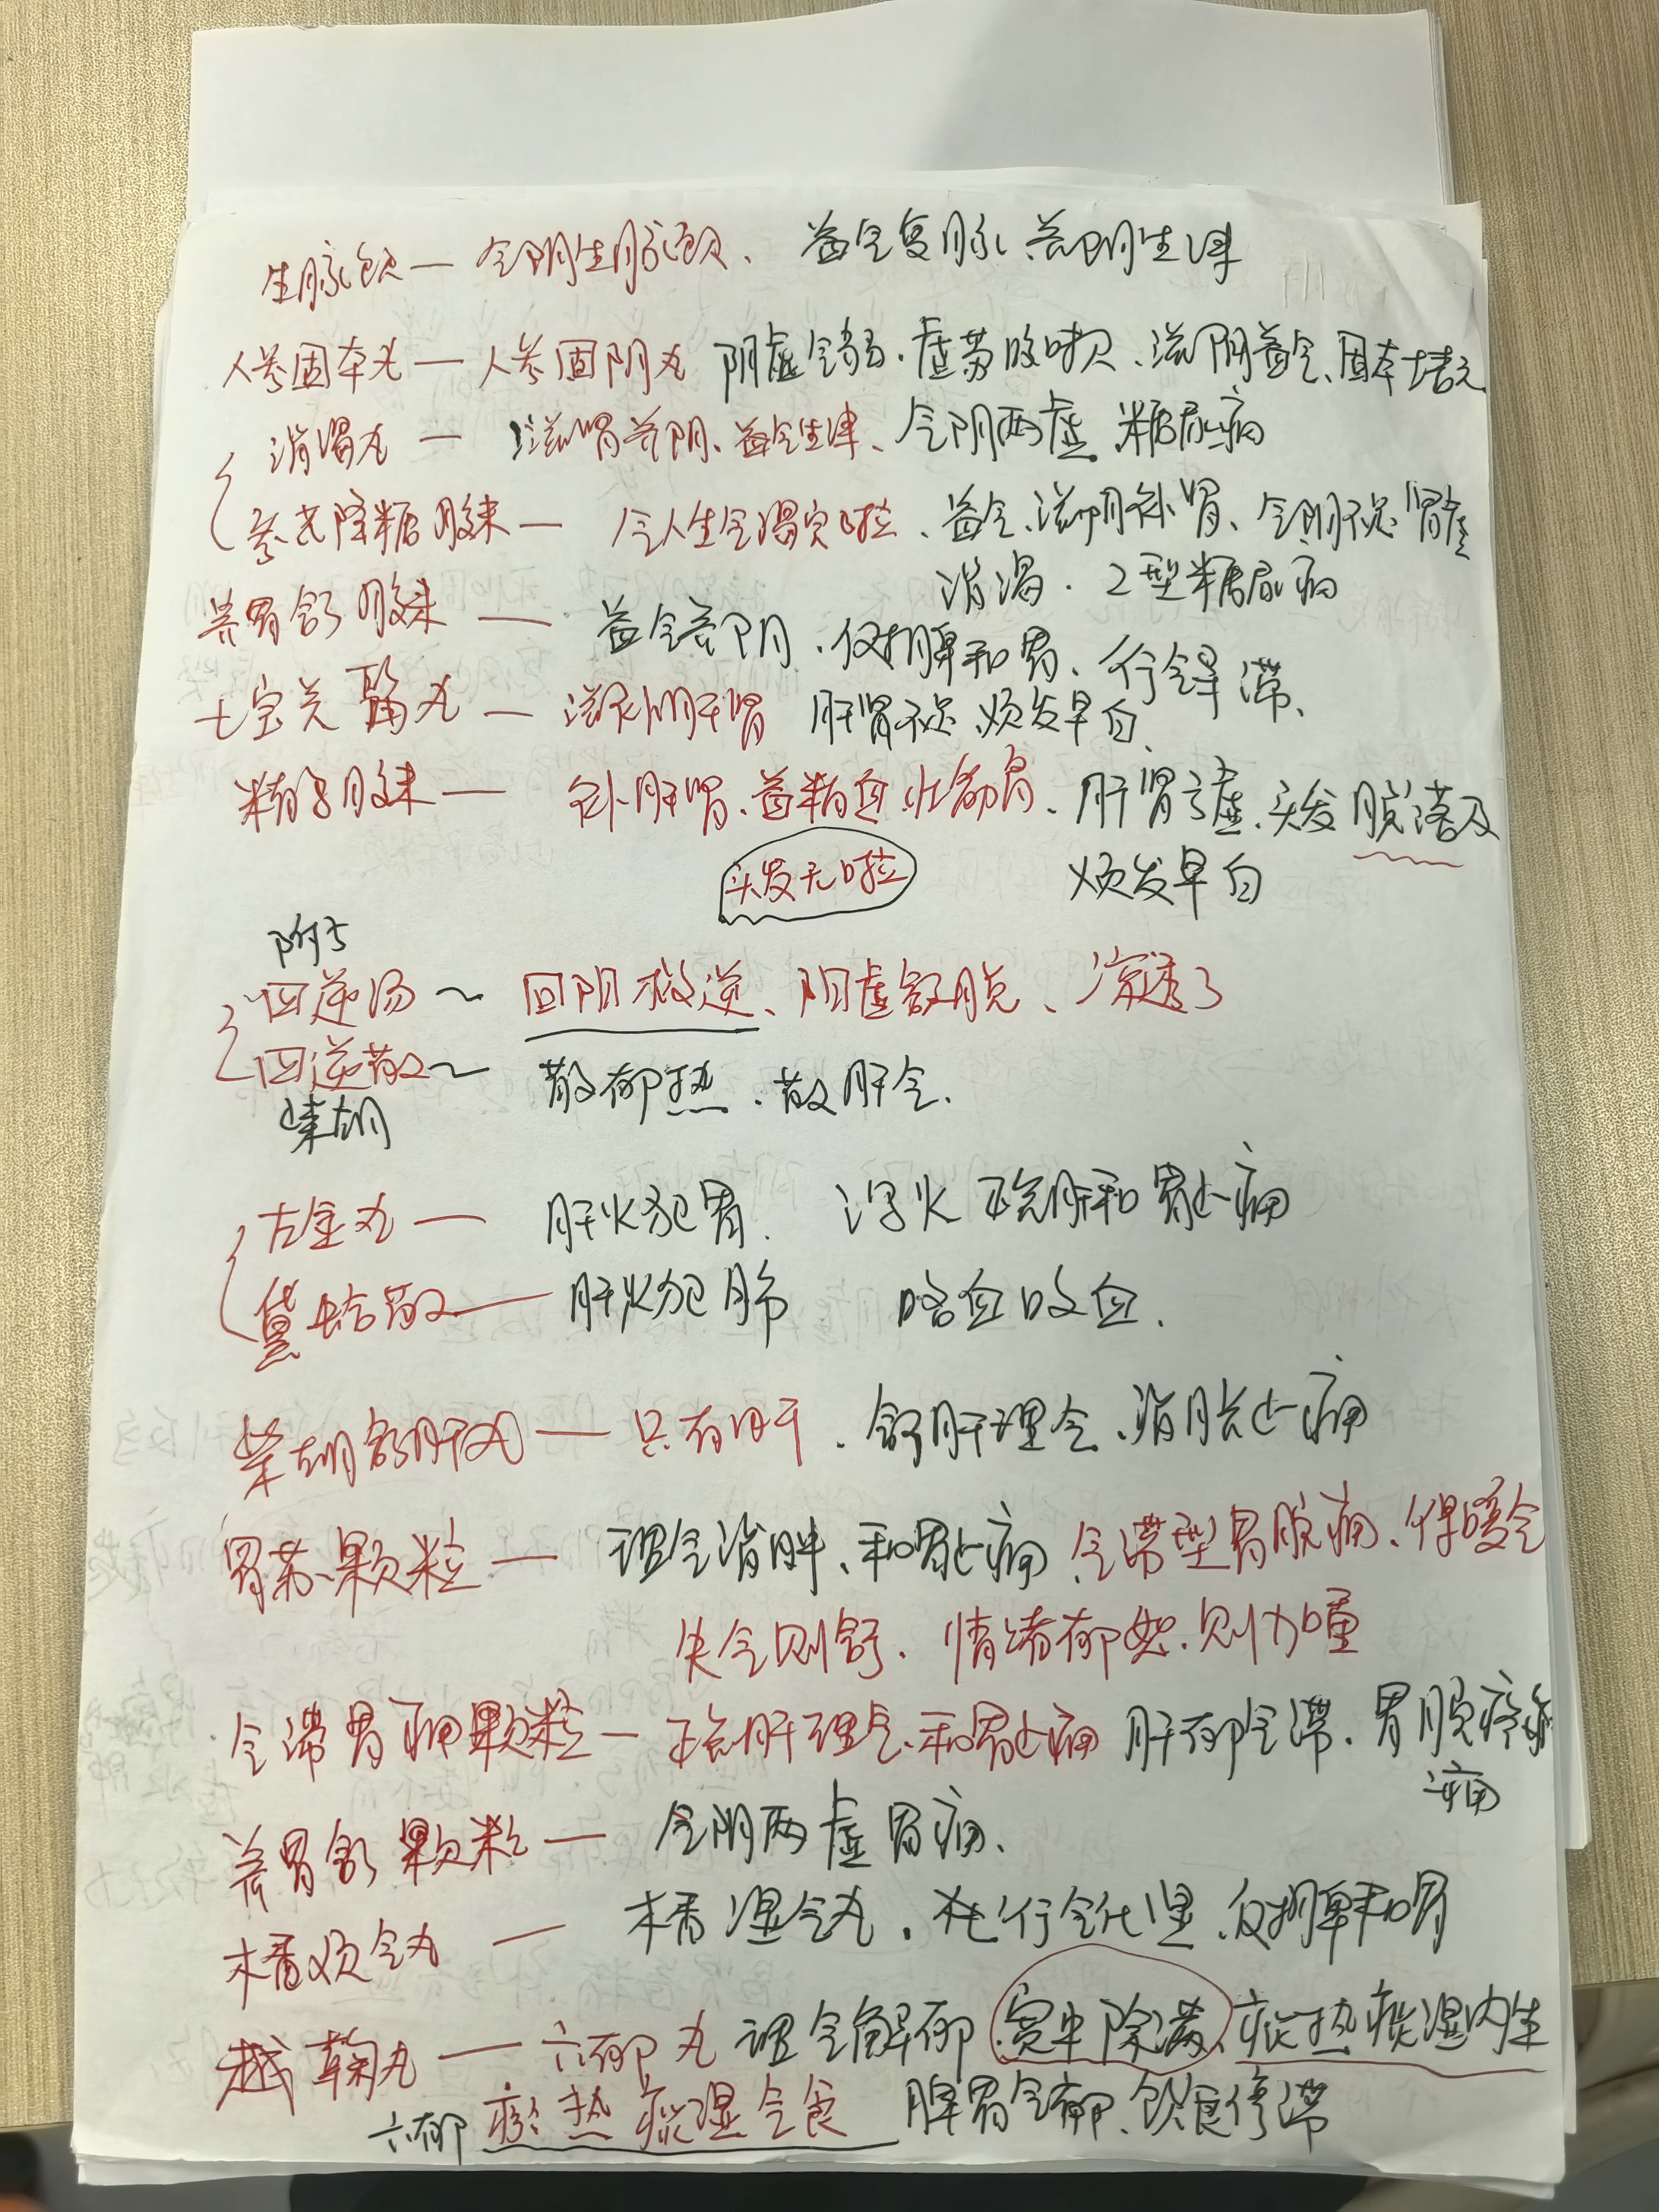 生脉饮—气阴生脉饮、益气复脉、养阴生津
人参固本丸—人参固阴丸 阴虚气弱.虚劳咳嗽、滋阴益气、固本培元
消渴丸—滋肾养阴、益气生津、气阴两虚 糖尿病
参芪降糖胶束—令人生气渴实啦、益气、滋阴补肾、气阴不足 肾虚
消渴.2型糖尿病
养胃舒胶束—益气养阴.健脾和胃、行气导滞、
七宝美髯丸—滋补肝肾 肝肾不足 须发早白、
精乌胶束—补肝肾、益精血 壮筋骨、肝肾亏虚、头发脱落及
头发无啦 须发早白
附子
四逆汤~回阳救逆、阳虚欲脱、凉透了
四逆散~散郁热.散肝气.
柴胡
左金丸—肝火犯胃. 泻火 疏肝和胃止痛
黛蛤散—肝火犯肺 咯血吸血.
柴胡舒肝丸—只有肝.舒肝理气、消胀止痛
胃苏颗粒—理气消胀、和胃止痛 气滞型胃脘痛、得嗳气
失气则舒.情绪郁怒.则加重
气滞胃痛颗粒—疏肝理气.和胃止痛 肝郁气滞.胃脘疼
痛
养胃舒颗粒—气阴两虚胃痛.
木香顺气丸—木香湿气丸.行气化湿.健脾和胃
越鞠丸—六郁丸 理气解郁 宽中除满、痰热痰湿内生
六郁 瘀热痰湿气食 脾胃气郁、饮食停滞